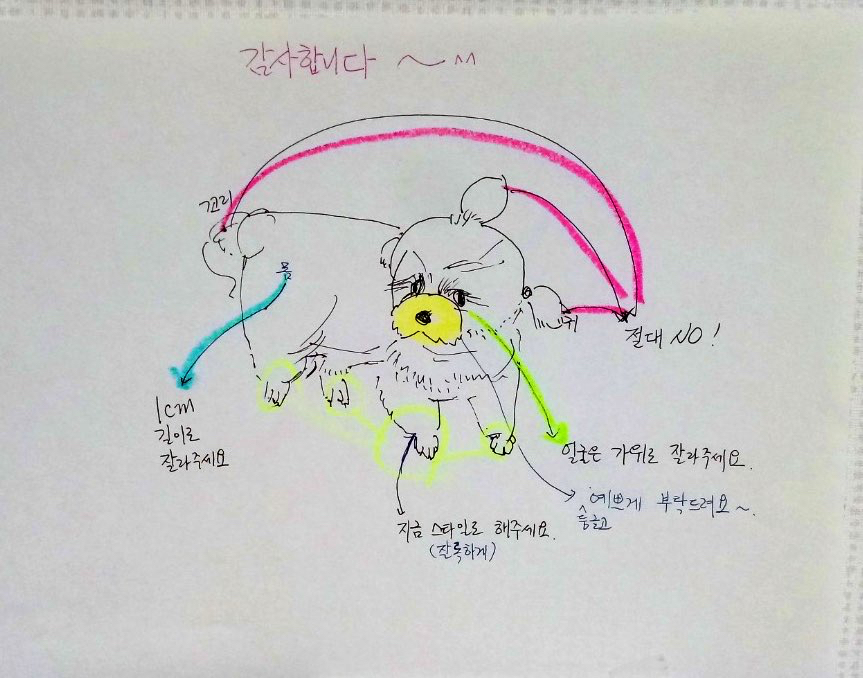 감사합니다 ~ ^^
꼬리
몸
귀
절대 NO!
1cm
길이로
잘라주세요
얼굴은 가위로 잘라주세요.
예쁘게 부탁드려요~.
둥글고
지금 스타일로 해주세요.
(잘록하게)